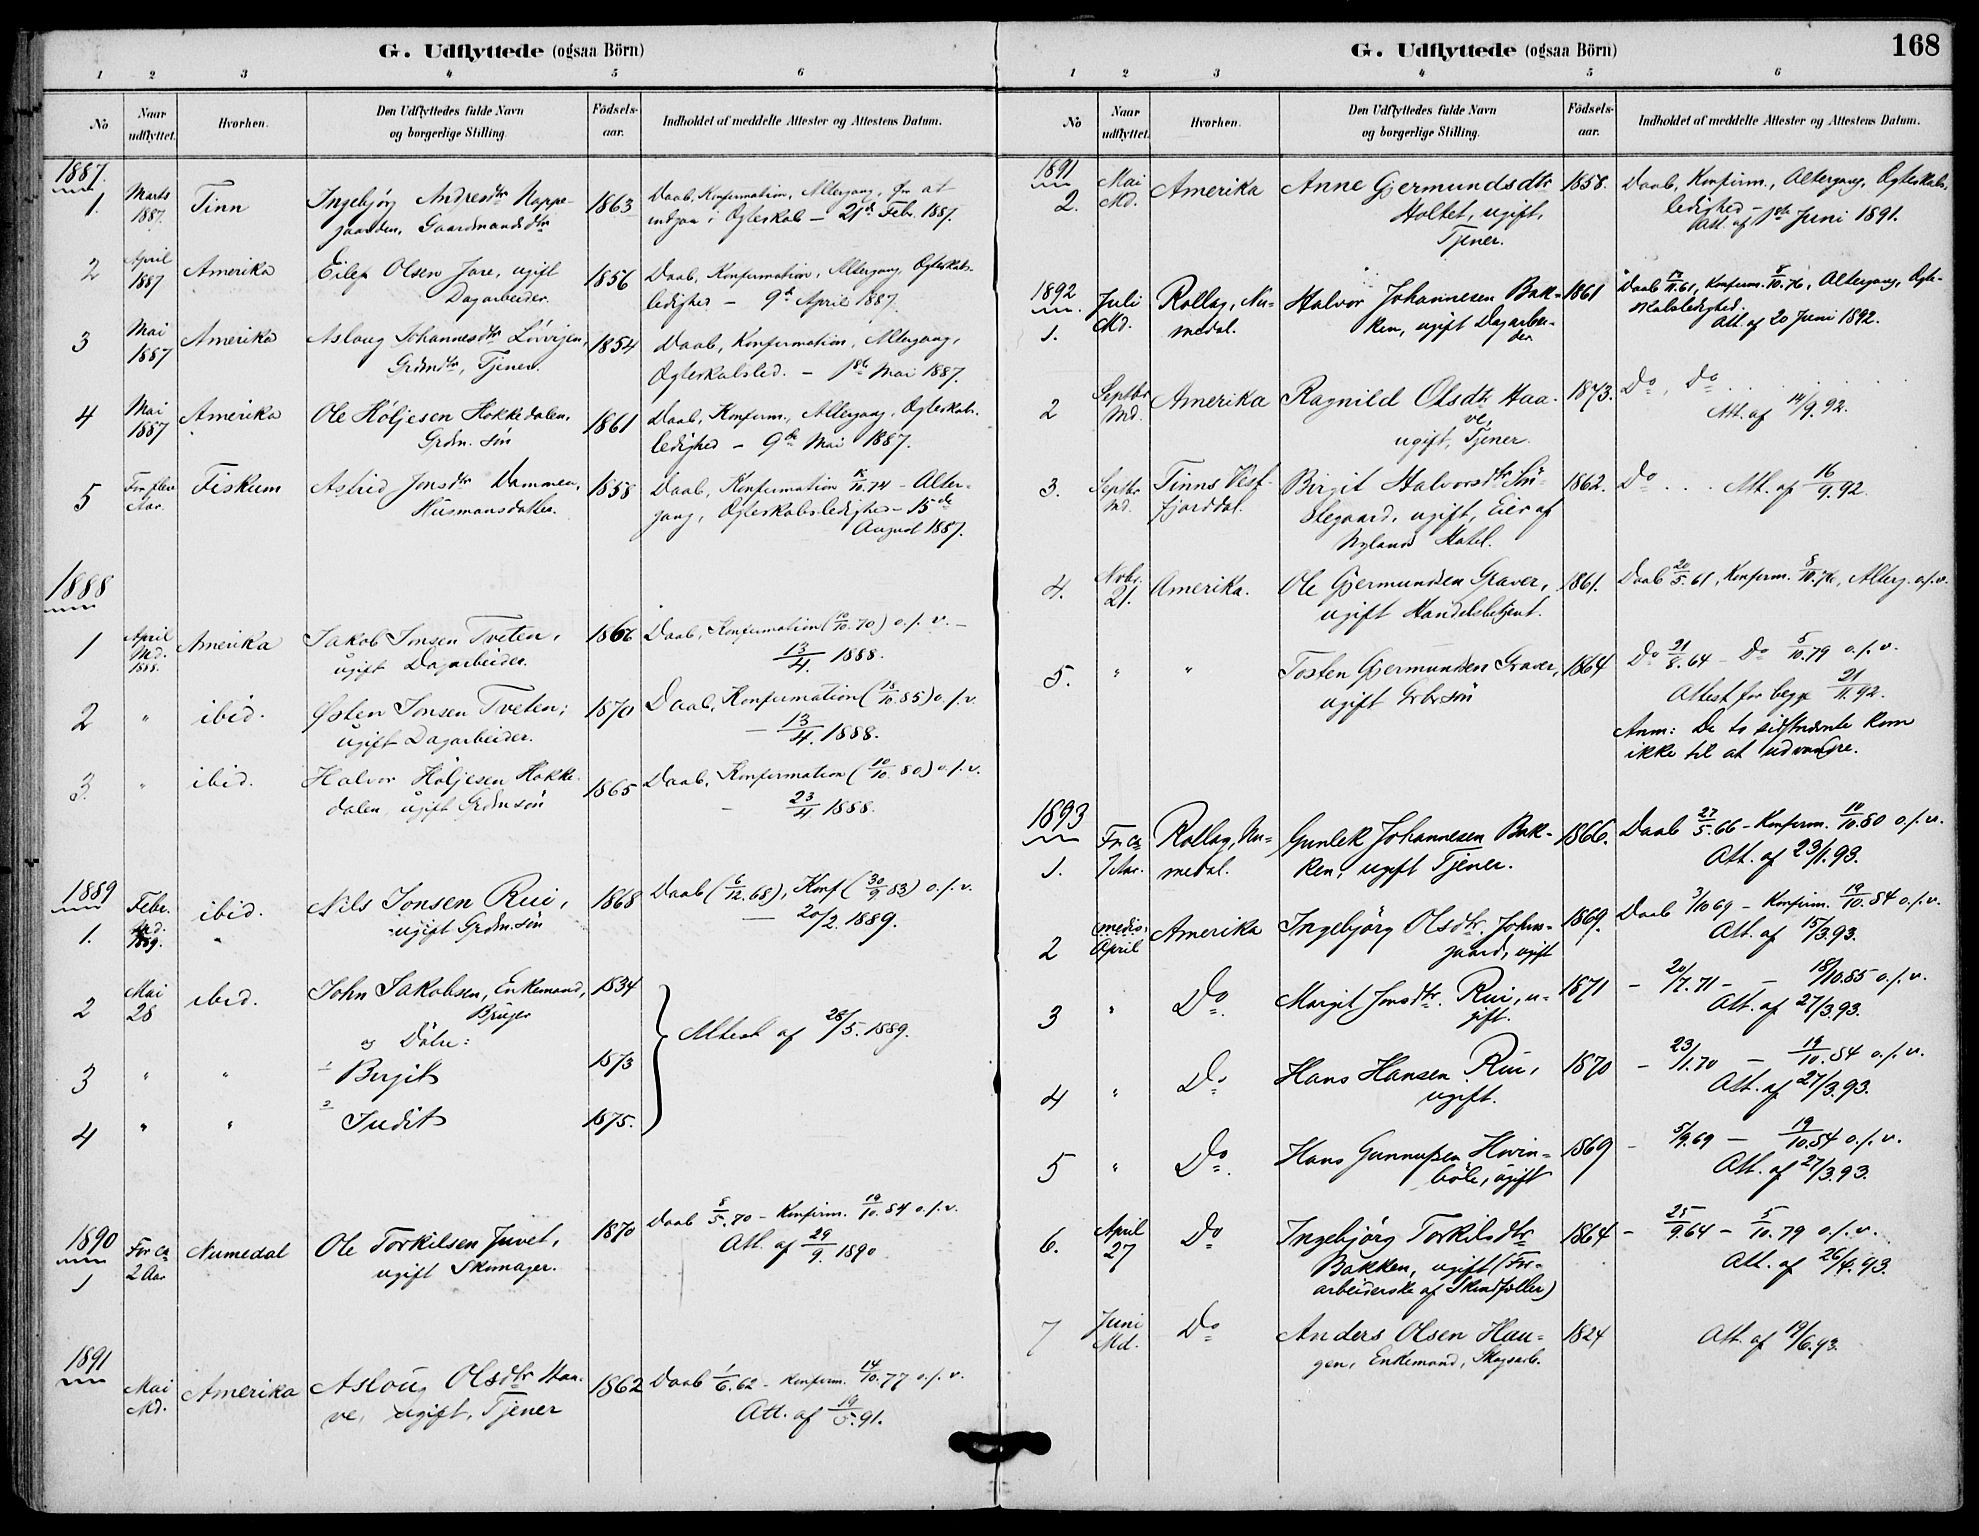 G. Udflyttede (ogsaa Börn)
1 2 3 4 5 6
No Naar udflyttet. Hvorhen. Den Udflyttedes fulde Navn og borgerlige Stilling. Födsels-aar. Indholdet af meddelte Attester og Attestens Datum.
1887.
1. Marts 1887. Tinn Ingebjørg Andresdtr Nappe- 1863 Daab, Konfirmation, Altergang, for at
gaarden, Gaardmandsdtr indgaa i Ægteskab – 21de Febr. 1887.
2 April 1887 Amerika Eilef Olsen Jore, ugift 1856 Daab, Konfirmation, Altergang, Ægteskabs-
Dagarbeider. ledighed – 9de April 1887.
3 Mai 1887 Amerika Aslaug Johannesdtr Lövvigen, 1854 Daab, Konfirmation, Altergang,
Grdmdtr, Tjener. Ægteskabsled. – 1ste Mai 1887.
4 Mai 1887 Amerika Ole Höljesen Hokkedalen, 1861 Daab, Konfirm., Altergang, Ægteskabs-
Grdm. sön ledighed – 9de Mai 1887.
5 For flere Aar. Fiskum Astrid Jonsdtr Dammen, 1858 Daab, Konfirmation 74 – Alter-
Husmansdatter. gang, Ægteskabsledighed – 15de
August 1887.
1888
1 April Md. 1888. Amerika Jakob Jonsen Tveten, Daab, Konfirmation (70) o.s.v. –
ugift Dagarbeider. 13/4. 1888.
2 " ibid. Østen Jonsen Tveten, 1870 Daab, Konfirmation (18/10. 85) o.s.v.
ugift Dagarbeider. – 13/4. 1888.
3. " ibid. Halvor Höljesen Hokke- 1865 Daab, Konfirmation (10/10. 80) o.s.v.
dalen, ugift Grdm sön – 23/4 1888.
1889
1. Febr. Md. 1889. ibid. Nils Jonsen Rui, 1868 Daab (6/12. 68), Konf (30/9 83) o.s.v.
ugift Grdm. sön – 20/2. 1889.
2 Mai 28 ibid. John Jakobsen, Enkemand, 1834
Bruger
og Dötre:
Attest af 28/5. 1889.
3 " " 1 Birgit 1873
4 " " 2 Judit 1875.
1890
1 For ca 2 Aar Numedal Ole Torkilsen Juvet, 1870 Daab 8/5. 70 – Konfirm. 19/10. 84 o.s.v.
ugift Skomager. Att. af 29/9. 1890
1891
Mai Md. Amerika Aslaug Olsdtr Haa- 1862 Daab 1/6. 62 – Konfirm. 14/10. 77 o.s.v.
ve, ugift, Tjener Att. af 19/5. 91.
G. Udflyttede (ogsaa Börn) 168
1 2 3 4 5 6
No Naar udflyttet. Hvorhen. Den Udflyttedes fulde Navn og borgerlige Stilling. Födsels-aar. Indholdet af meddelte Attester og Attestens Datum.
1891
2. Mai Md. Amerika Anne Gjermundsdtr 1858. Daab, Konfirm., Altergang, Ægteskabs-
Holtet, ugift, ledighed –
Tjener. Att. af 1ste Juni 1891.
1892
1. Juli Md. Rollag, Nu- Halvor Johannesen Bak- 1861 Daab 61, Konfirm. 8/10. 76, Altergang, Ægte-
medal. ken, ugift Dagarbei- skabsledighed.
der Att. af 20 Juni 1892.
2 Septbr Md. Amerika Ragnild Olsdtr Haa- 1873. Do, Do . . .
ve, Att. af 14/9. 92.
ugift, Tjener.
3. Septbr Md. Tinns Vest- Birgit Halvorsdtr 1862. Do . . . Att. af 16/9. 92.
fjorddal. ugift, Eier af
Nylands Hotel.
4. Novbr. 21. Amerika. Ole Gjermundsen Graver, 1861. Daab 20/5. 61, Konfirm. 8/10. 76, Alterg. o.s.v.
ugift Handelsbetjent.
5. " " Tosten Gjermundsen Graver, 1864 Do 21/8. 64 – Do 5/10. 79 o.s.v.
ugift Grbrsön Attest for begge 21/11. 92.
Anm: De to sidstnævnte kom
ikke til at udvandre.
1893
1. For ca 7 Aar. Rollag, Nu- Gunlek Johannesen Bak- 1866. Daab 27/5. 66 – Konfirm. 10/10. 80 o.s.v.
medal. ken, ugift Tjener. Att. af 23/1. 93.
2 medio April Amerika Ingebjörg Olsdtr. Johns- 1869. Daab 3/10 69 – Konfirm. 19/10. 84 o.s.v.
gaard, ugift Att. af 15/3. 93.
3 " Do Margit Jonsdtr. Rui, u- 1871 – 20/7. 71 – – 18/10. 85 o.s.v.
gift. Att. af 27/3. 93.
4 " Do Hans Hansen Rui, 1870 – 23/1. 70 – 19/10. 84 o.s.v.
ugift. Att. af 27/3. 93.
5 " Do Hans Gunnufsen Hvin- 1869 – 5/9. 69 – 19/10. 84 o.s.v.
böle, ugift Att. af 27/3. 93.
6. April 27 Do Ingebjörg Torkilsdtr 1864 – 25/9. 64 – 5/10. 79 o.s.v.
Bakken, ugift (For- Att. af 26/4. 93.
arbeiderske af Skindfæller)
7 Juni Md. Do Anders Olsen Hau- 1824 Att. af 19/6. 93.
gen, Enkemand, Skogsarb.